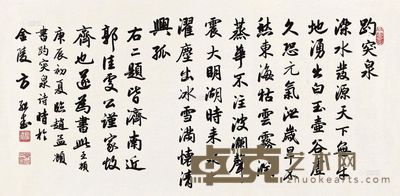 趵突泉
濼水發源天下無平
地湧出白玉壺谷虛
久恐元氣泄歲旱不
愁東海枯雲霧潤
蒸華不注波瀾聲
震大明湖時來泉上
濯塵土冰雪滿懷清
興孤
右二題皆濟南近
郭佳處公謹家故
齊也遂為書此孟頫
庚辰初夏臨趙孟頫
書趵突泉詩時於
金陵方